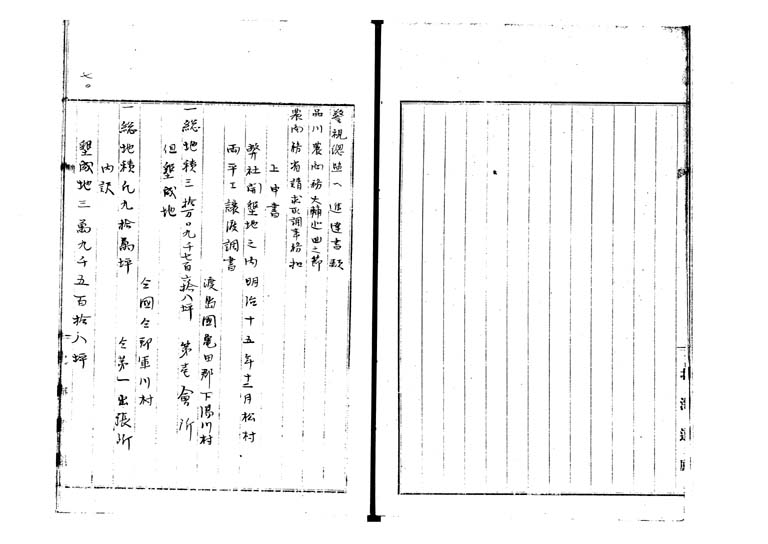 警視総監へ進達書類
品川農商務大輔巡回之節
農商務省請求取調事務扣
上申書
弊社開墾地之内明治十五年十二月松村
両平エ譲渡調書
渡島國亀田郡下湯川村
一総地積三拾万〇九千七百六拾八坪 第壱會所
但墾成地
仝國仝郡軍川村
一総地積凡九拾萬坪 仝第一出張所
内訳
墾成地三萬九千五百拾八坪
七〇
北海道